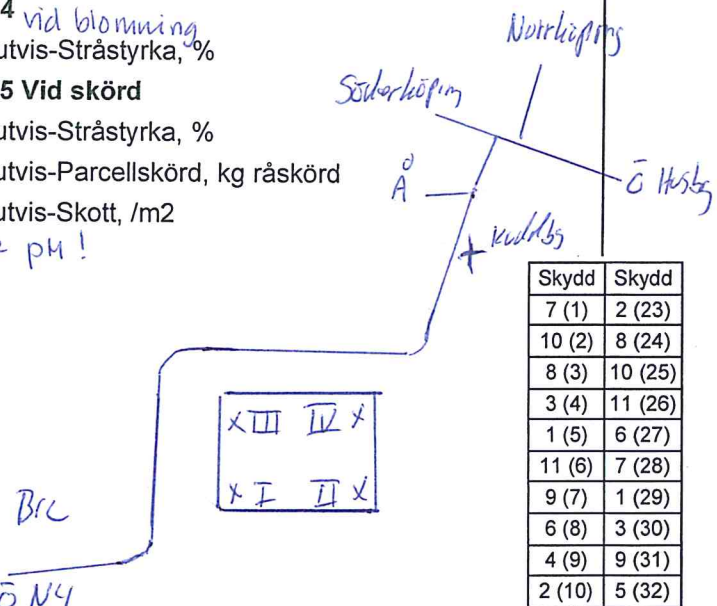 4 vid blomning
utvis-Stråstyrka, %
5 Vid skörd
utvis-Stråstyrka, %
utvis-Parcellskörd, kg råskörd
utvis-Skott, /m2
pH !
Norrköping
Söderköping
Å
Ö Husby
Kuddby
III IV
I II
Ö Ny
Skydd Skydd
7 (1) 2 (23)
10 (2) 8 (24)
8 (3) 10 (25)
3 (4) 11 (26)
1 (5) 6 (27)
11 (6) 7 (28)
9 (7) 1 (29)
6 (8) 3 (30)
4 (9) 9 (31)
2 (10) 5 (32)